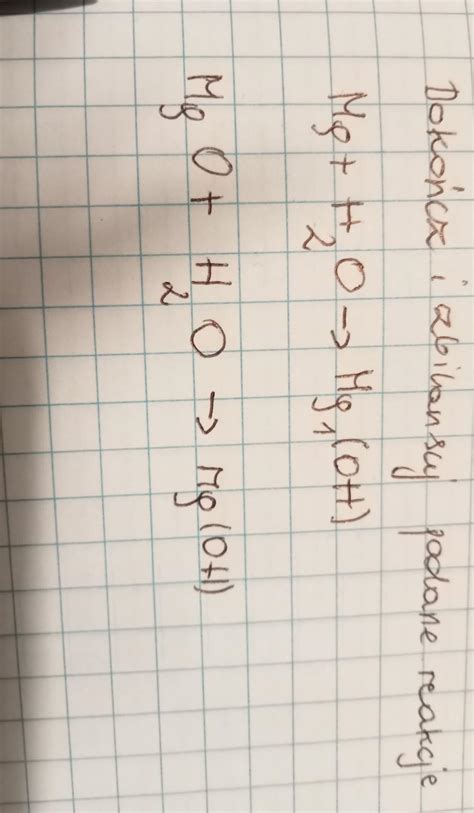 Dokończ i zbilansuj podane reakcje
Mg + H₂O → Mg₁(OH)
MgO + H₂O → Mg(OH)